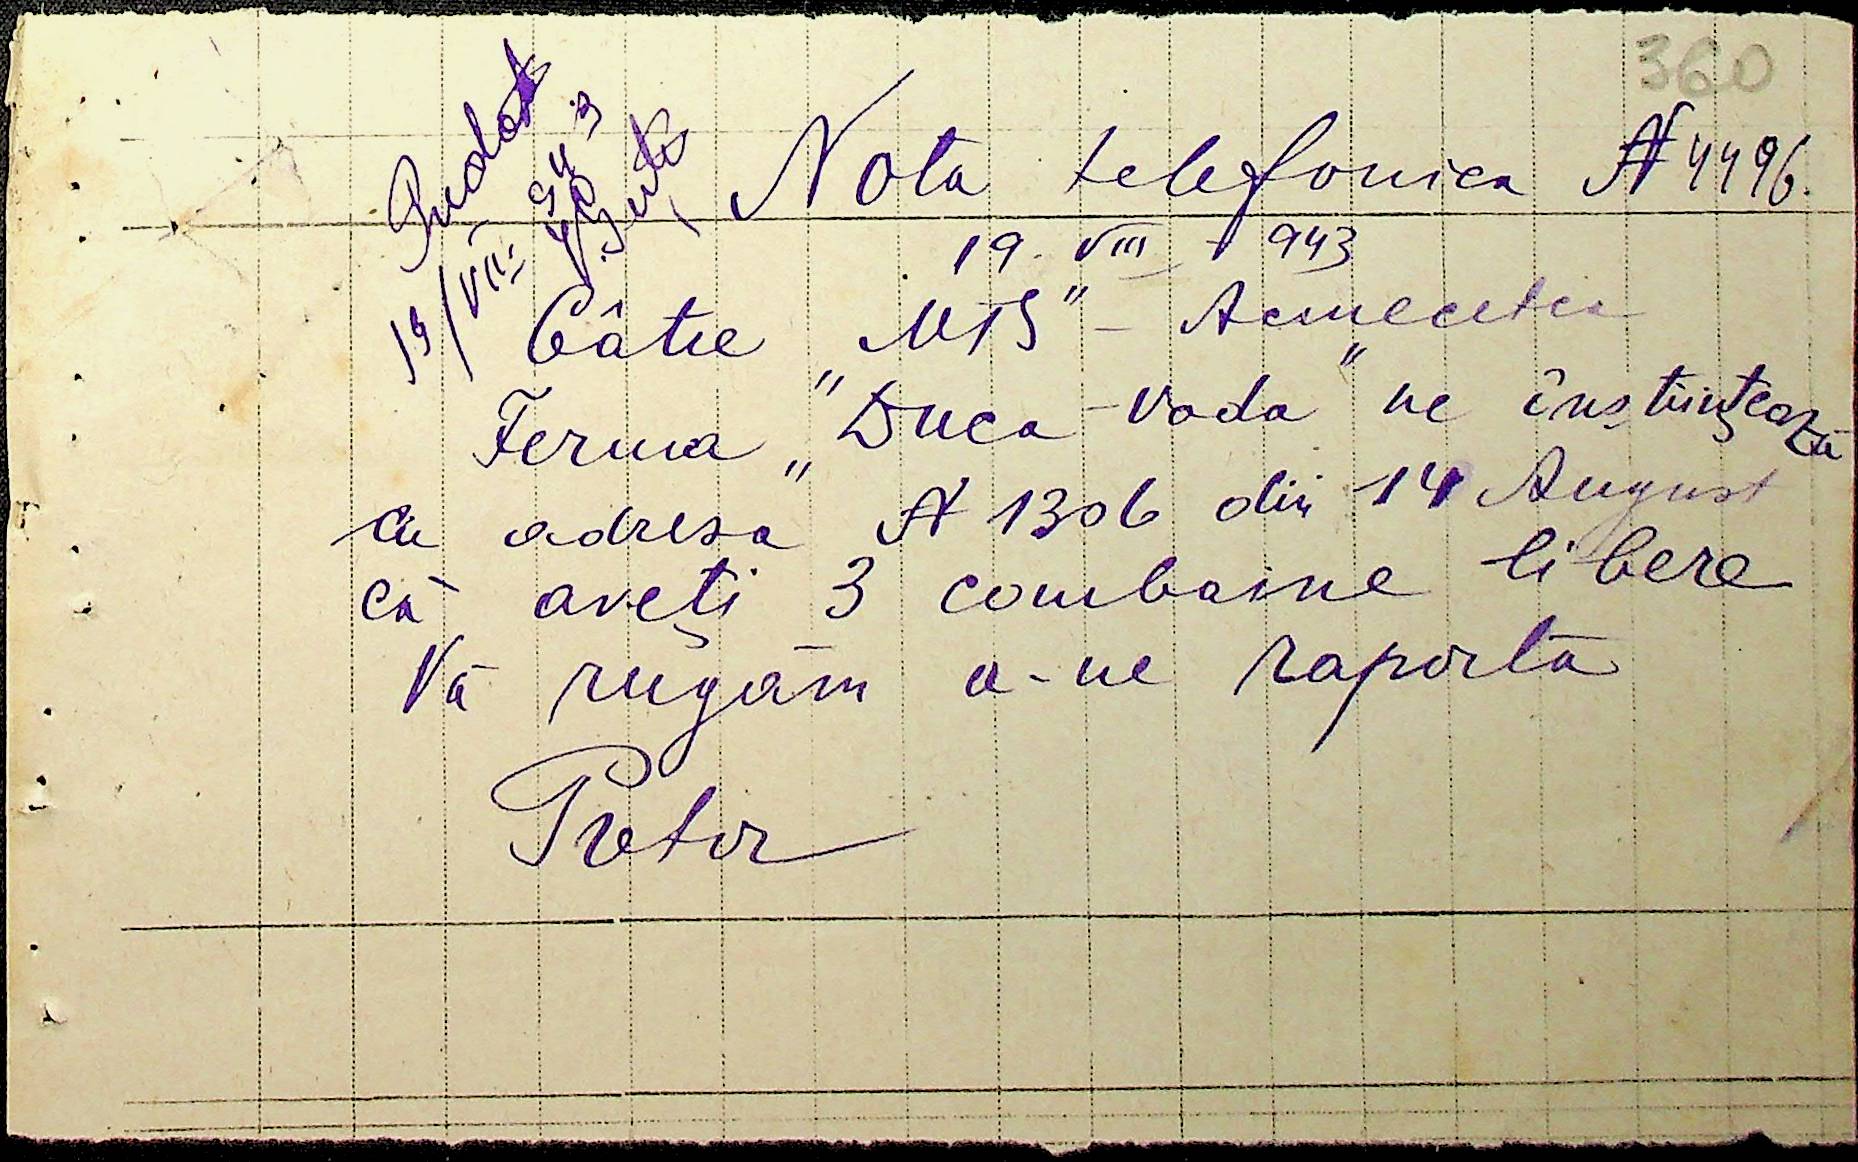 360
Predat
19/VIII 943
Nota telefonica № 4496.
19. VIII - 943
Câtre „MTS" - Acmecetca
Ferma „Duca-Voda" ne înștiințează
cu adresa № 1306 din 14 August
că aveți 3 combaine libere
Vă rugăm a-ne raportă
Pretor